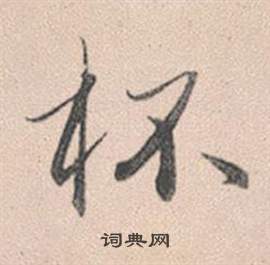 杯
词典网